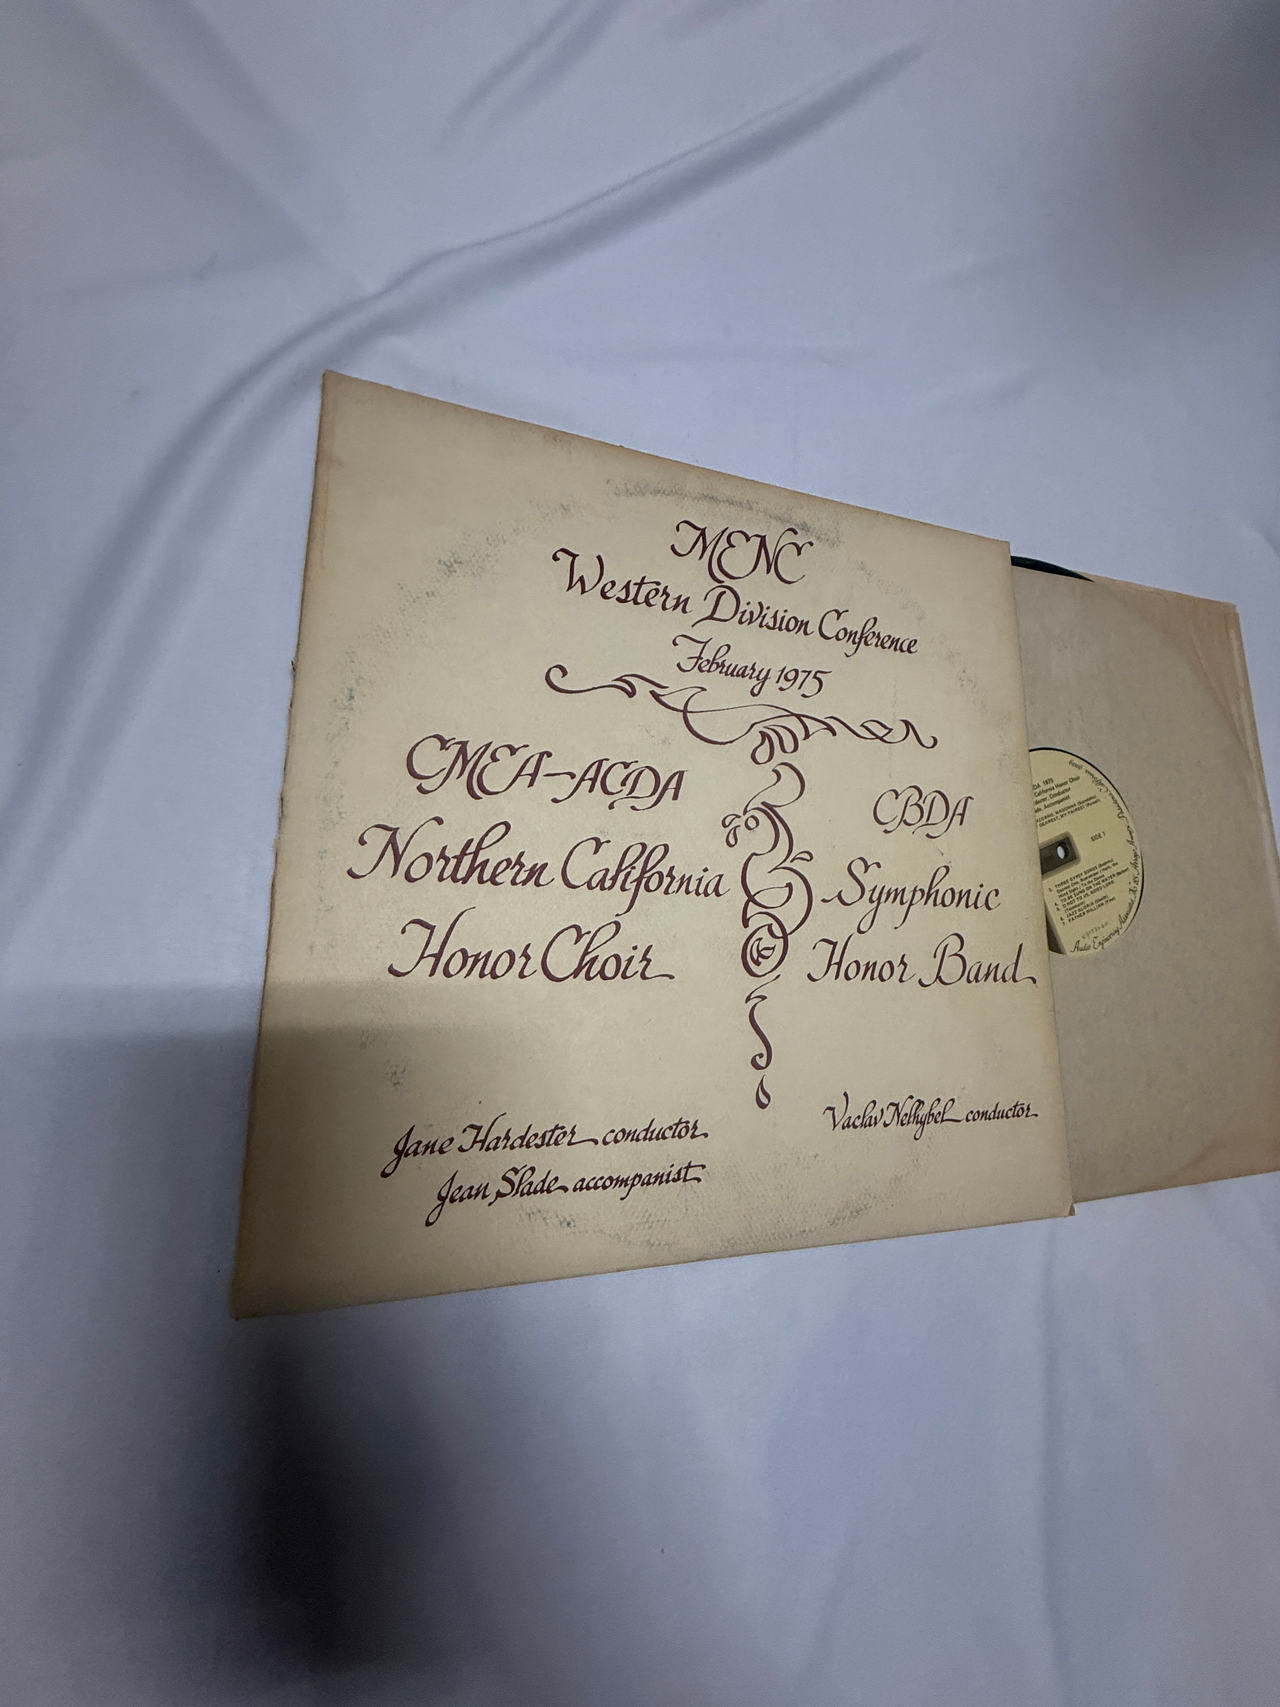 MENC
Western Division Conference
February 1975
CMEA-ACDA
Northern California
Honor Choir
Jane Hardester conductor
Jean Slade accompanist
CBDA
Symphonic
Honor Band
Vaclav Nelhybel conductor
1975
California Honor Choir
Conductor
Accompanist
SIDE 1
THREE GYPSY SONGS
JAZZ GLORIA
FATHER WILLIAM
Audio Engineering Associates